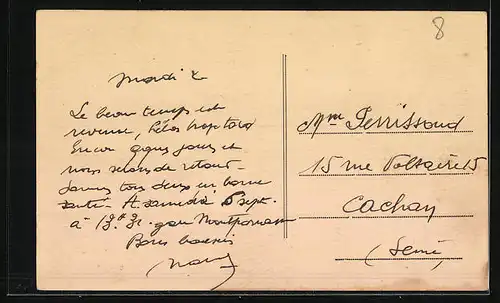 8
mardi
Le beau temps est
revenu, hélas trop tard
Encor qques jours et
nous serons de retour
tous deux en bonne
santé. A samedi 5 sept.
à gare Montparnasse
Bons baisers
Mme Perrissoud
15 rue Voltaire 15
Cachan
(Seine)